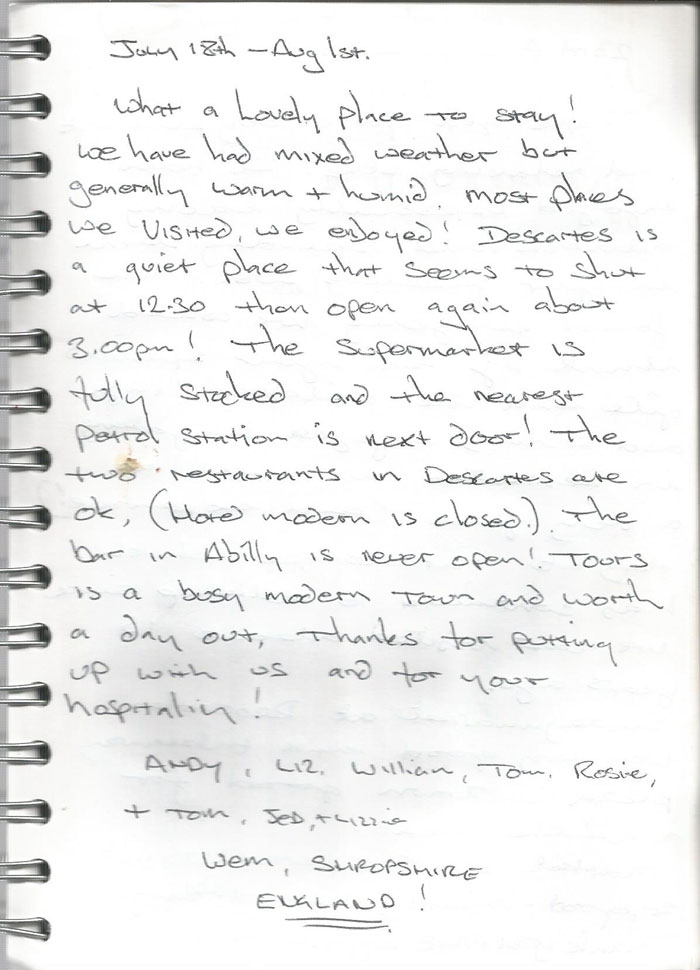 July 18th - Aug 1st.
What a lovely place to stay!
We have had mixed weather but
generally warm + humid. most places
we visited, we enjoyed! Descartes is
a quiet place that seems to shut
at 12.30 then open again about
3.00pm! The Supermarket is
fully stocked and the nearest
petrol station is next door! The
two restaurants in Descartes are
ok, (Hotel modern is closed.). The
bar in Abilly is never open! Tours
is a busy modern Town and worth
a day out, Thanks for putting
up with us and for your
hospitality!
ANDY, LIZ. William, Tom. Rosie,
+ Tom, JED, + Lizzie
Wem, SHROPSHIRE
ENGLAND!